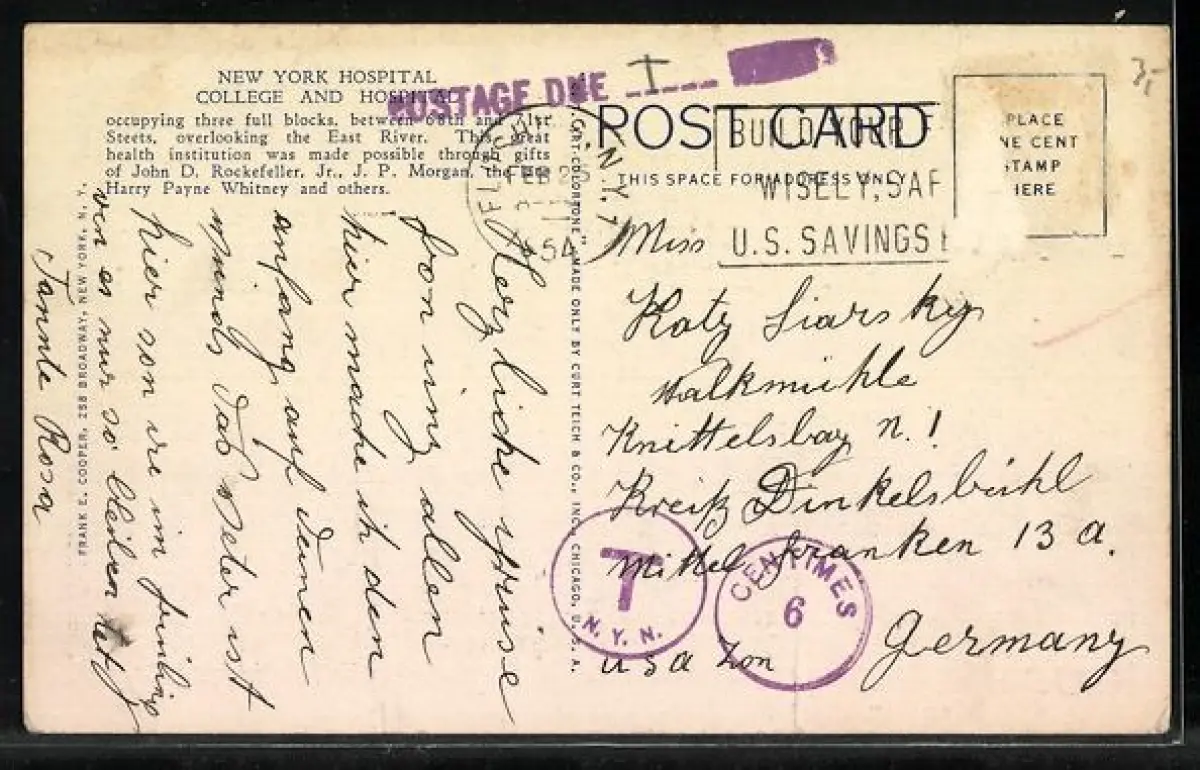 NEW YORK HOSPITAL
COLLEGE AND HOSPITAL
occupying three full blocks, between 68th and 71st
Steets, overlooking the East River. This great
health institution was made possible through gifts
of John D. Rockefeller, Jr., J. P. Morgan, the late
Harry Payne Whitney and others.
POSTAGE DUE
POST CARD
THIS SPACE FOR ADDRESS ONLY
PLACE
NE CENT
STAMP
HERE
3,-
N.Y. 1
FEB 2
54
BUILD YOUR F
WISELY, SAF
U.S. SAVINGS
Miss
Katy Siarsky
Walkmühle
Knittelsbag n. !
Kreiß Dinkelsbühl
Mittel franken 13 a.
usa Zon
Germany
T
N. Y. N.
CENTIMES
6
MADE ONLY BY CURT TEICH & CO., INC., CHICAGO, U. S. A.
FRANK E. COOPER, 258 BROADWAY, NEW YORK, N. Y.
Herzliche grüise
fon uns allen
hier mache ih den
anfang auf
das Peter ist
hier son wie im frühling
wen es nur so bleiben
Tannte Rosa